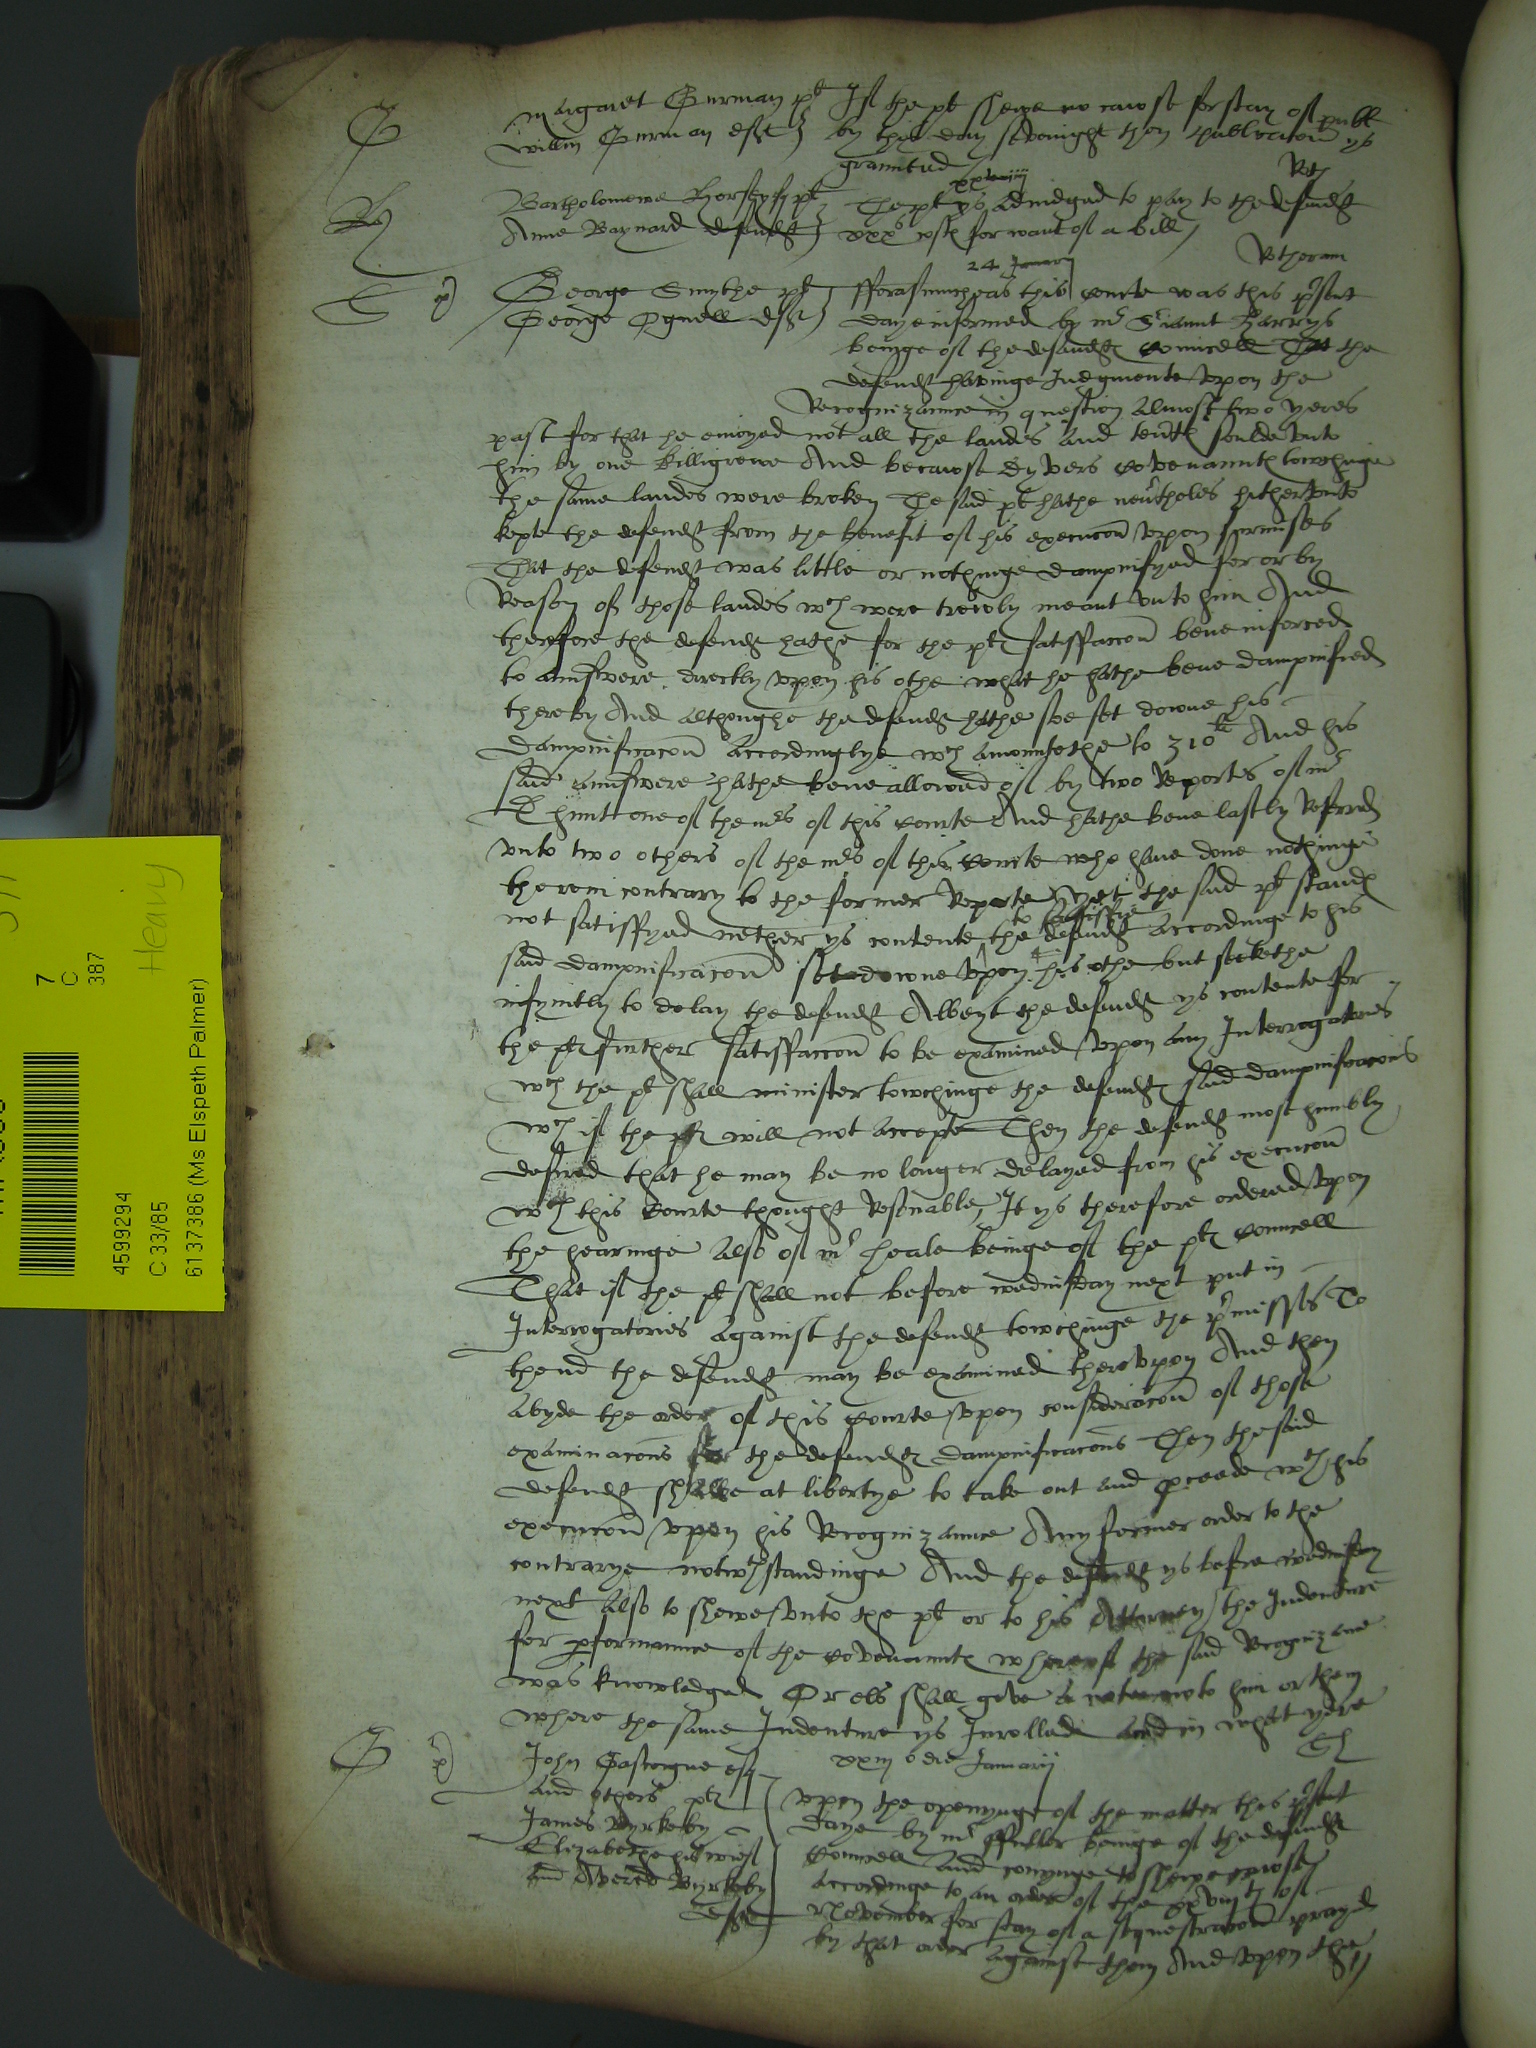 G
Margaret Gurman pt If the pt shewe no cause for stay of publ
Willm Gurman deft by this day sevenight then publicacon ys
graunted
Ry
Bartholomewe pt The pt ys adiudged to pay to the defendt
Anne Baynard defendt xxxs costes for want of a bill
24 January
George Smythe pt fforasmuche as this courte was this pñte
George Ognell deft daye informed by mr Sriaunt Harrys
beinge of the defendtes councell That the
defendt havinge Judgmente vpon the
Recognizaunce in question almost two yeres
past for that he enioyed not all the landes and tentes soulde vnto
him by one Killigrewe And because dyvers covenauntes towchinge
the same landes were broken The said pt hathe nevertheles hithervnto
kepte the defendt from the benefit of his execucon vpon surmises
That the defendt was little or nothinge dampnifyed for or by
Reason of those landes wch were trewly meant vnto him And
therefore the defendt hathe for the ptes satisfaccon bene inforced
to aunswere directly vpon his othe what he hathe bene dampnified
thereby And althoughe the defendt hathe soe set downe his
dampnificacon accordinglye wch amountethe to 310li And his
said aunswere hathe bene allowed of by two Reportes of mr
D Hunt one of the mrs of this courte And hathe bene lastly Referred
vnto two others of the mrs of this courte who have done nothinge
therein contrary to the former Reporte yet the said pt standes
not satisfyed nether ys contente to satisfie the defendt accordinge to his
said dampnificacon set downe vpon his othe but seekethe
infynitly to delay the defendt Albeyt the defendt ys contente for
the ptes further satisfaccon to be examined vpon any Interrogatories
wch the pt shall minister towchinge the defendtes said dampnificacons
wch if the pt will not accepte Then the defendt most humbly
desired that he may be no longer delayed from his execucon
wch this Courte thought Resonable, It ys therefore ordered vpon
the hearinge also of mr Heale beinge of the ptes councell
That if the pt shall not before wednisday next put in
Interrogatories against the defendt towchinge the pmisses To
thend the defendt may be examined therevpon And then
abyde the order of this courte vpon consideracon of those
examinacons for the defendtes dampnificacons Then the said
defendt shalbe at libertye to take out and pceede wth his
execucon vpon his Recognizaunce Any former order to the
contrarye notwthstandinge And the defendt ys before wednisday
next also to shewe vnto the pt or to his Attorney the Indenture
for pformaunce of the covenauntes whereof the said Recognizance
was knowledged Or els shall give a note vnto him or them
where the same Indenture ys Inrolled and in what yere
G
John Gascoigne esq
and others ptes
James Kyrkeby
Elizabethe his wief
and Kyrkeby
deftes
xxiij die Januarij
vpon the openynge of the matter this pñte
daye by mr ffuller beinge of the defendtes
councell and comynge to shewe cause
accordinge to an order of the xxviijth of
November for stay of a sequestracon prayed
by that order against them And vpon the
7
C
387
Heavy
4599294
C 33/85
6137386 (Ms Elspeth Palmer)